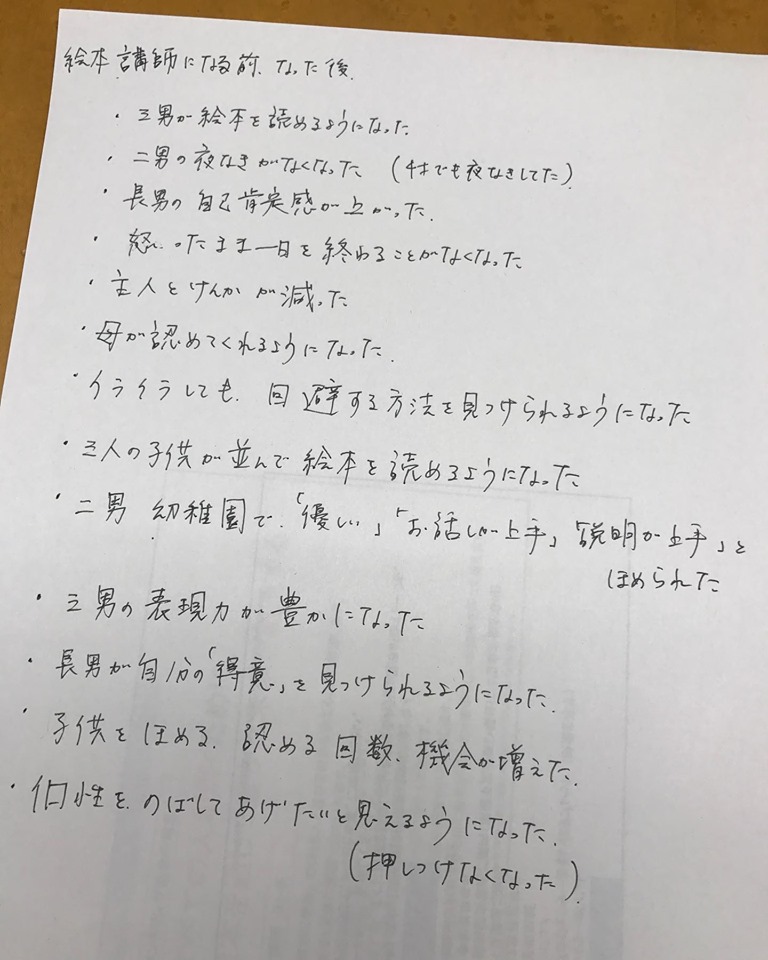 絵本講師になる前、なった後
・三男が絵本を読めるようになった
・二男の夜なきがなくなった (4才でも夜なきしてた)
・長男の自己肯定感が上がった.
・怒ったまま一日を終わることがなくなった
・主人とけんかが減った
・母が認めてくれるようになった.
・イライラしても、回避する方法を見つけられるようになった
・三人の子供が並んで絵本を読めるようになった
・二男 幼稚園で、「優しい」「お話しが上手」「説明が上手」と
ほめられた
・三男の表現力が豊かになった
・長男が自分の「得意」を見つけられるようになった.
・子供をほめる、認める回数、機会が増えた.
・個性を、のばしてあげたいと思えるようになった.
(押しつけなくなった).